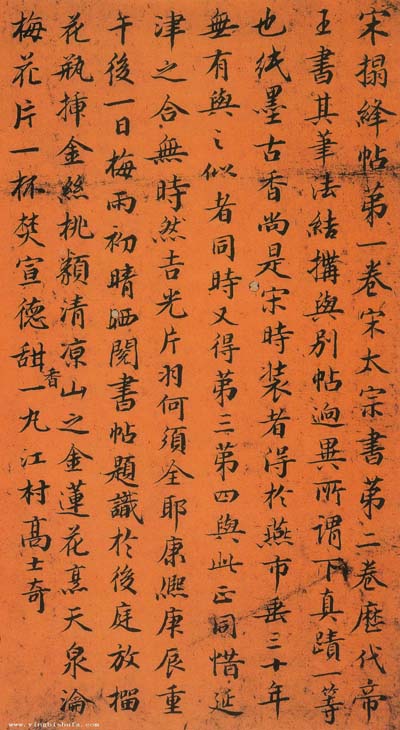 宋搨絳帖第一卷宋太宗書第二卷歷代帝
王書其筆法結搆與別帖迥異所謂下真蹟一等
也紙墨古香尚是宋時装者得於燕市垂三十年
無有與之似者同時又得第三第四與此正同惜延
津之合無時然吉光片羽何須全耶康熙庚辰重
午後一日梅雨初晴晒閱書帖題識於後庭放榴
花瓶揷金絲桃類清凉山之金蓮花烹天泉瀹
梅花片一杯焚宣德甜香一丸江村髙士奇
www.yingbishufa.com